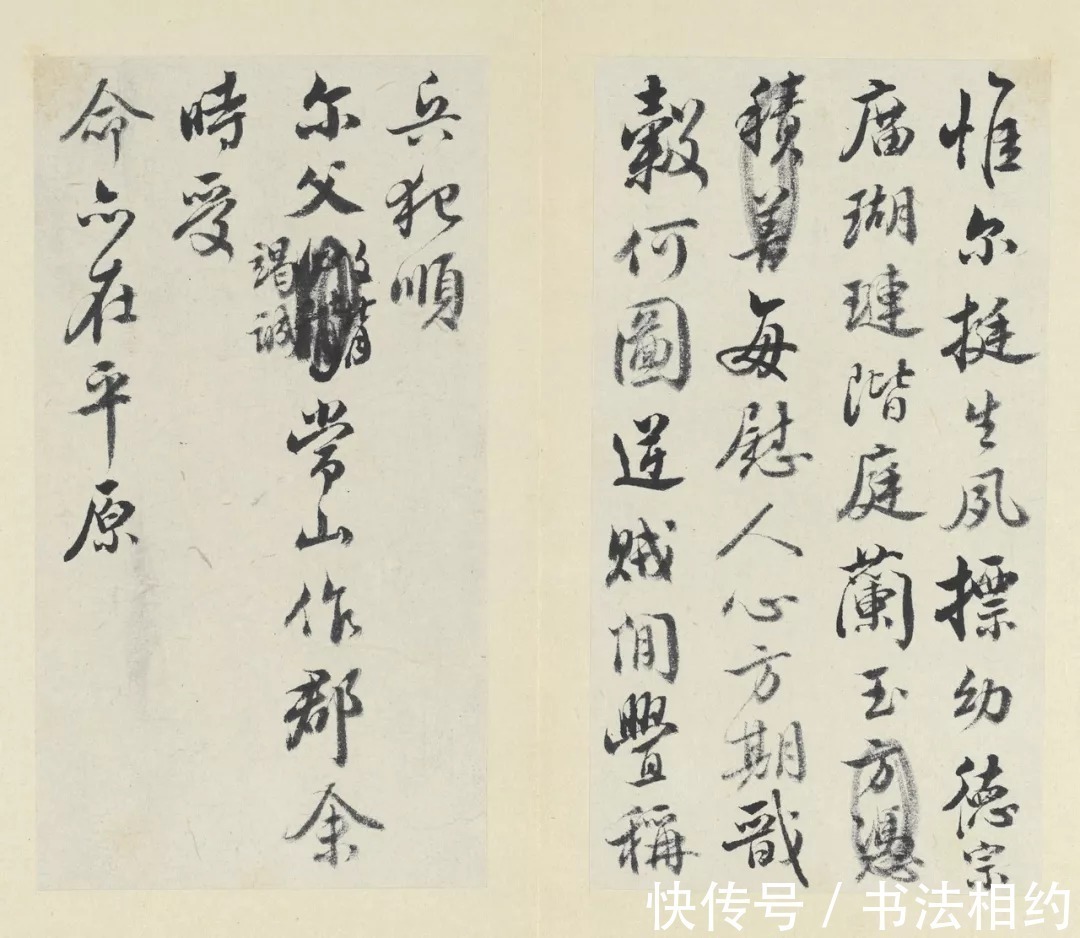 惟尔挺生夙標幼德宗
庿瑚璉階庭蘭玉方憑
積善每慰人心方期戩
榖何圖逆賊閒釁稱
兵犯順
尔父竭誠常山作郡余
時受
命亦在平原
快传号 / 书法相约